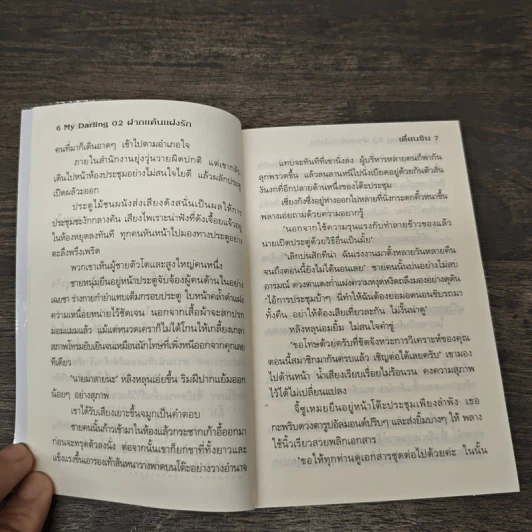 6 My Darling 02 ฝากแค้นแฝงรัก
คนที่มาก็เดินอาดๆ เข้าไปตามอำเภอใจ
ภายในสำนักงานยุ่งวุ่นวายผิดปกติ แต่เขากลับ
เดินไปหน้าห้องประชุมอย่างไม่สนใจไยดี แล้วผลักประตู
เปิดผลัวะออก
ประตูไม้ชนผนังส่งเสียงดังสนั่นเป็นผลให้การ
ประชุมชะงักกลางคัน เสียงไพเราะน่าฟังที่ดังเจื้อยแจ้วอยู่
ในห้องหยุดลงทันที ทุกคนหันหน้าไปมองทางประตูอย่าง
ตะลึงพรึงเพริด
พวกเขาเห็นผู้ชายตัวโตและสูงใหญ่คนหนึ่ง
ชายหนุ่มยืนอยู่หน้าประตูจับจ้องผู้คนด้านในอย่าง
เฉยชา ร่างกายกำยำแทบเต็มกรอบประตู ใบหน้าคล้ำดำแฝง
ความเหนื่อยหน่ายไว้ชัดเจน นอกจากเสื้อผ้าจะสกปรก
มอมแมมแล้ว แม้แต่หนวดเคราก็ไม่ได้โกนให้เกลี้ยงเกลา
สภาพโทรมยับเยินจนเหมือนนักโทษที่เพิ่งหนีออกจากคุกเลย
ทีเดียว
"นายมาสายนะ" หลิงหลุนเอ่ยขึ้น ริมฝีปากแย้มออก
น้อยๆ อย่างสุภาพ
เขาได้รับเสียงเยาะขึ้นจมูกเป็นคำตอบ
ชายคนนั้นก้าวเข้ามาในห้องแล้วกระชากเก้าอี้ออกมา
ก่อนจะทรุดตัวลงนั่ง ต่อจากนั้นเขาก็ยกขาที่ทั้งยาวและ
แข็งแรงขึ้นเอารองเท้าส้นหนาวางพาดบนโต๊ะอย่างวางอำนาจ
เตี่ยนซิน 7
แทบจะทันทีที่เขานั่งลง ผู้บริหารหลายคนก็พากัน
ลุกพรวดขึ้น แล้วลนลานหนีไปนั่งเบียดอยู่ด้วยกันตัวสั่น
งันงกที่อีกปลายด้านหนึ่งของโต๊ะประชุม
เซียงกังซึ่งอยู่ห่างออกไปหลายที่นั่งกระดกคิ้วหนาขึ้น
พลางเอ่ยถามด้วยความอยากรู้
"นอกจากใช้ความรุนแรงกับทำลายข้าวของแล้ว
นายเปิดประตูด้วยวิธีอื่นเป็นมั้ย"
"เลิกบ่นสักทีน่า ฉันเร่งงานมาตั้งหลายวันหลายคืน
จนถึงตอนนี้ยังไม่ได้นอนเลย" ชายคนนั้นบ่นอย่างไม่สบ
อารมณ์ ดวงตาแดงก่ำแฝงความหงุดหงิดถลึงมองอย่างดุดัน
"ไอ้การประชุมบ้าๆ นี่ทำให้ฉันต้องยอมอดนอนขับรถมา
ทั้งคืน อย่าให้ต้องเสียเที่ยวละกัน ไม่งั้นน่าดู"
หลิงหลุนอมยิ้ม ไม่สนใจคำขู่
"ขอโทษด้วยครับที่ขัดจังหวะการวิเคราะห์ของคุณ
ตอนนี้สมาชิกมากันครบแล้ว เชิญต่อได้เลยครับ" เขามอง
ไปด้านหน้า น้ำเสียงเรียบเรื่อยไม่ร้อนรน คงความสุภาพ
ไว้ได้ไม่เปลี่ยนแปลง
จี๊ซูเหมยยืนอยู่หน้าโต๊ะประชุมเพียงลำพัง เธอ
กะพริบดวงตารูปอัลมอนด์ปริบๆ และส่งยิ้มบางๆ ให้ พลาง
ใช้นิ้วเรียวสวยพลิกเอกสาร
"ขอให้ทุกท่านดูเอกสารชุดต่อไปด้วยค่ะ ในนั้น